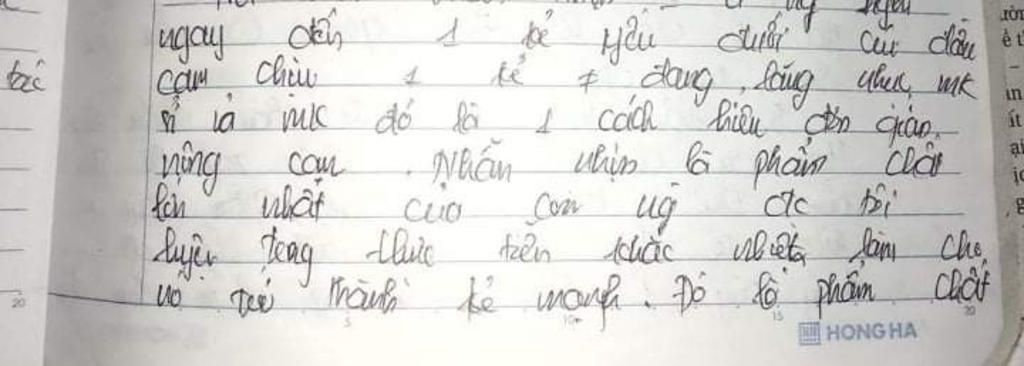 ngay đến 1 kẻ yếu đuối cúi đầu
cam chịu 1 kẻ ≠ đang lăng nhục mk
sỉ vả mk đó là 1 cách hiểu đơn giản.
nông cạn. Nhẫn nhịn là phẩm chất
lớn nhất của con ng đc tôi
luyện trong thực tiễn khắc nhiệt, làm cho
nó trở thành kẻ mạnh. Đó là phẩm chất
HONG HA